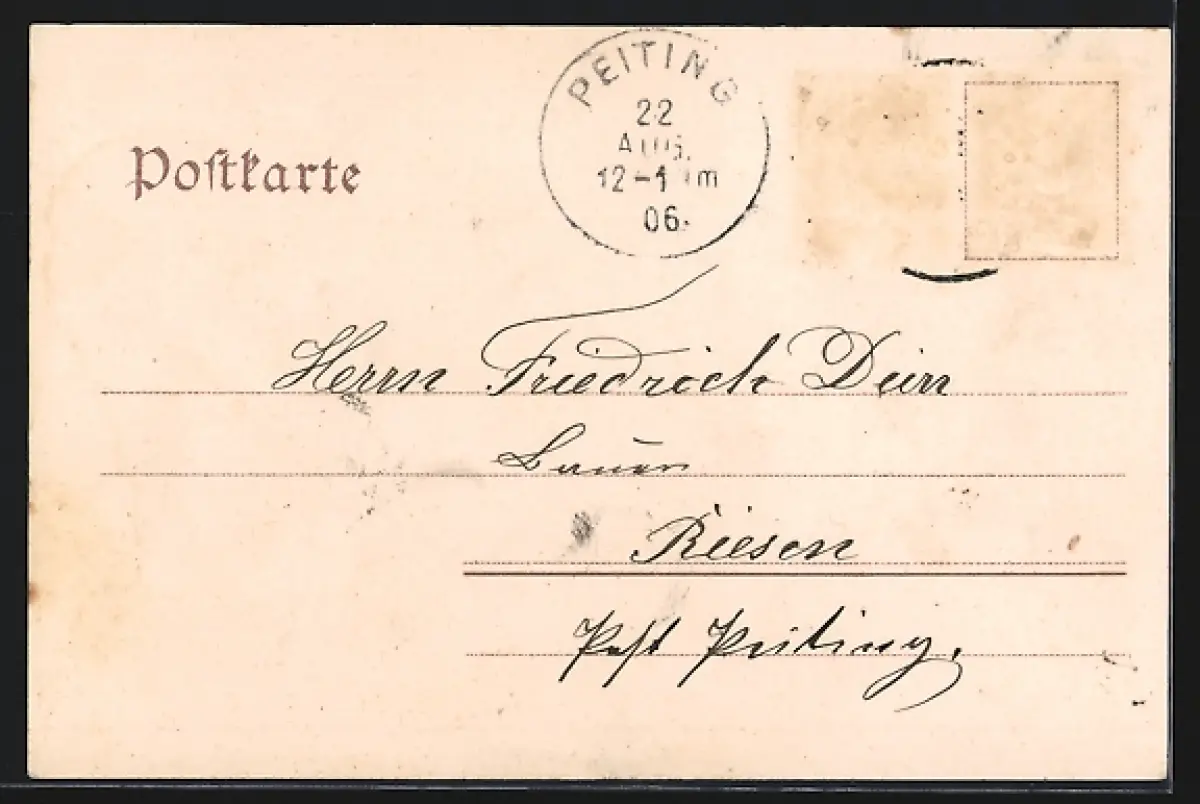 Postkarte
PEITING
22
AUG.
12-1 Nm
06.
Herrn Friedrich Dürr
Bauer
Riesen
Post Peiting.